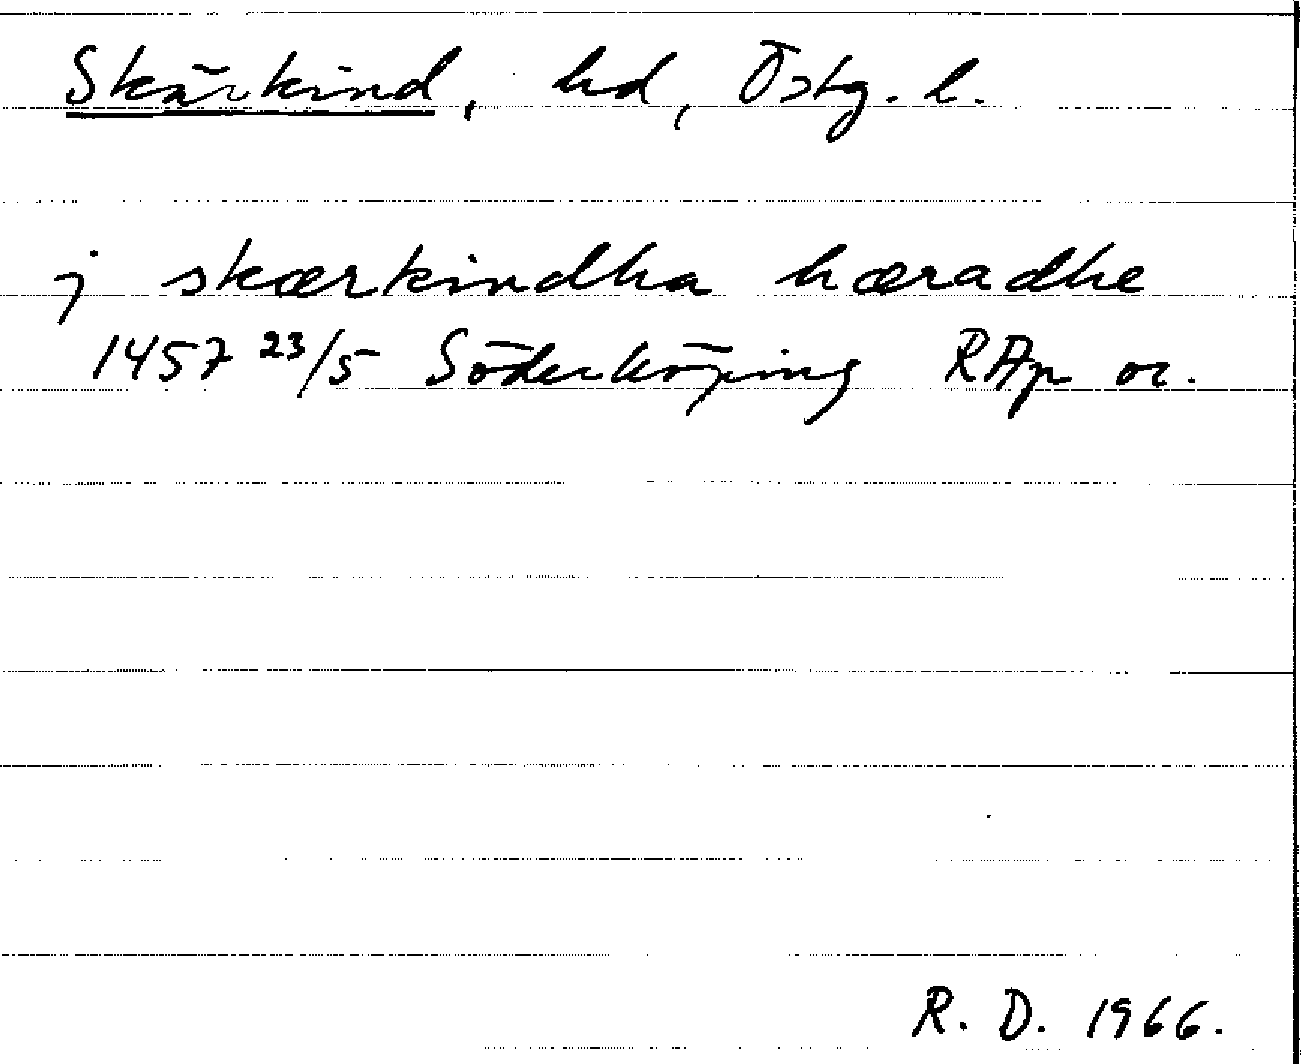 Skärkind, hd, Östg. l.
j skærkindha hæradhe
1457 23/5 Söderköping RAp or.
R. D. 1966.